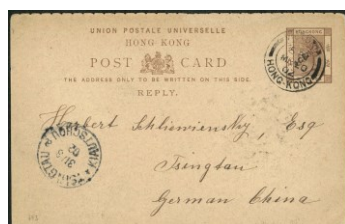 UNION POSTALE UNIVERSELLE
HONG KONG
POST CARD
THE ADDRESS ONLY TO BE WRITTEN ON THIS SIDE.
REPLY.
HONG-KONG
Herbert Schliewiensky, Esq
Tsingtau
German China